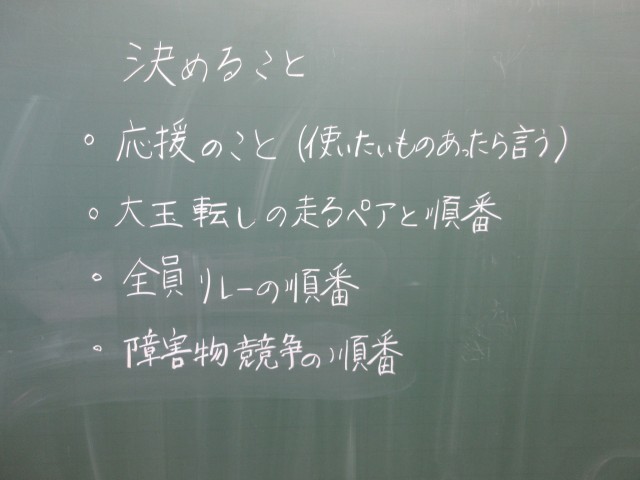 決めること
。応援のこと(使いたいものあったら言う)
。大玉転しの走るペアと順番
。全員リレーの順番
。障害物競争の順番